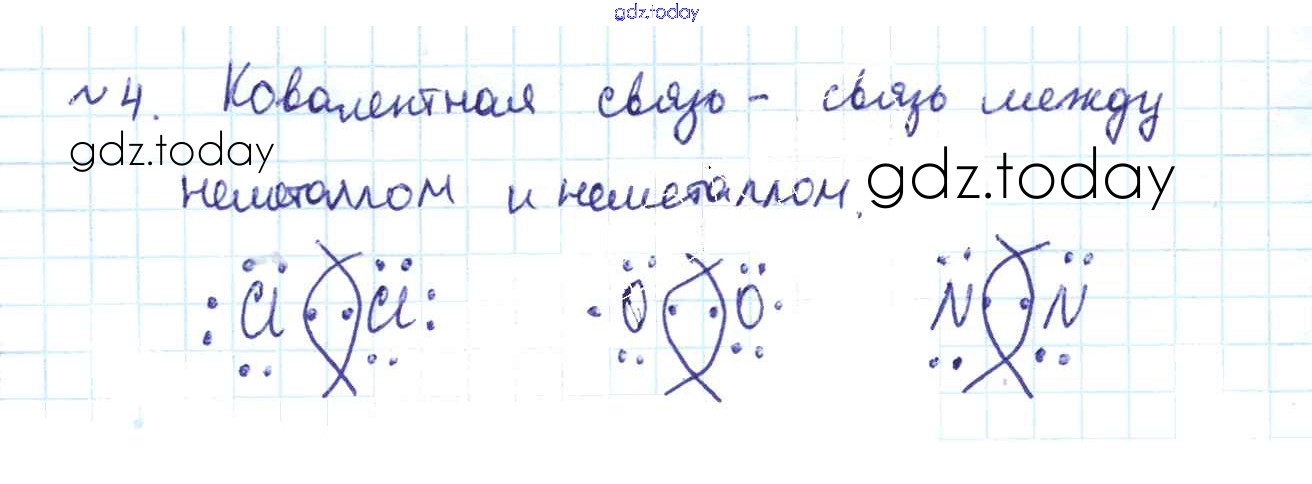 gdz.today
№4. Ковалентная связь - связь между
gdz.today
неметаллом и неметаллом.
gdz.today
Cl Cl O O N N